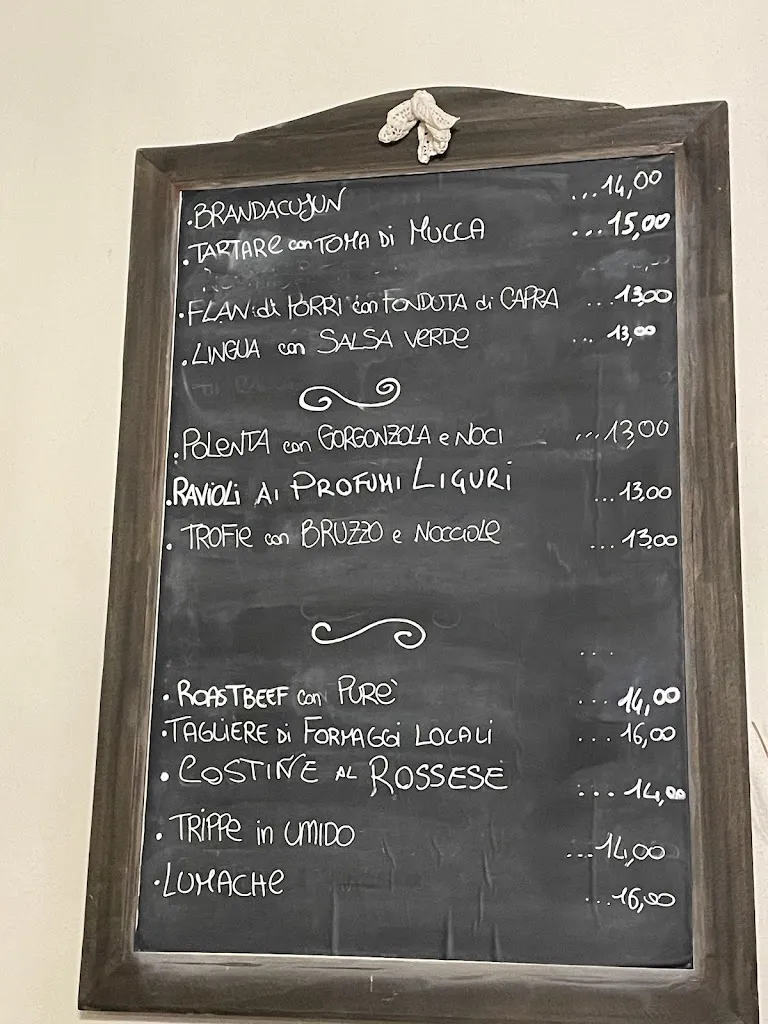 ·BRANDACUJUN ...14,00
·TARTARE con TOMA DI MUCCA ...15,00
·FLAN di PORRI con FONDUTA di CAPRA ...13,00
·LINGUA con SALSA VERDE ...13,00
·POLENTA con GORGONZOLA e NOCI ...13,00
·RAVIOLI AI PROFUMI LIGURI ...13,00
·TROFIE con BRUZZO e NOCCIOLE ...13,00
...
·ROASTBEEF con PURÈ ...14,00
·TAGLIERE DI FORMAGGI LOCALI ...16,00
·COSTINE AL ROSSESE ...14,00
·TRIPPE in UMIDO ...14,00
·LUMACHE ...16,00